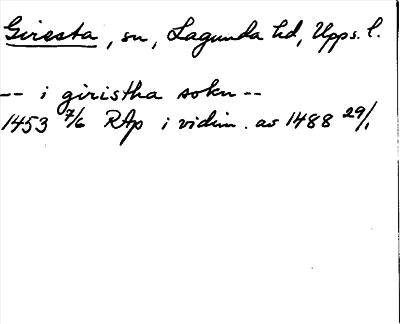 Giresta, sn, Lagunda hd, Upps. l.
-- i giristha sokn --
1453 7/6 RAp i vidim. av 1488 29/1